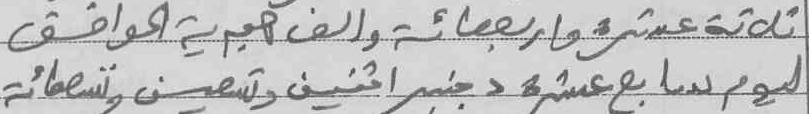 ثلاثة عشرة واربعمائة والف هجرية الموافق
ليوم سابع عشرة دجنبر اثنين وتسعين وتسعمائة